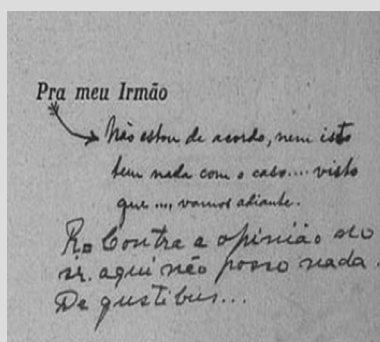 Pra meu Irmão
Não estou de acordo, nem isto
tem nada com o caso.... visto
que ..., vamos adiante.
R. Contra a opinião do
sr. aqui não posso nada.
De gustibus...